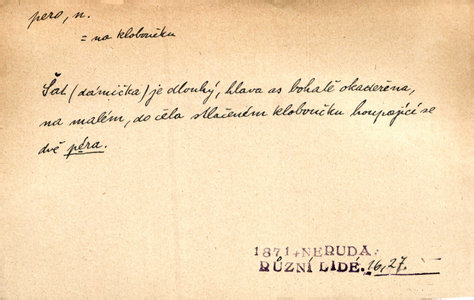 pero, n.
= na kloboučku
Šat (dámička) je dlouhý, hlava as bohatě okadeřena,
na malém, do čela stlačeném kloboučku houpající se
dvě péra.
1871, NERUDA.
RŮZNÍ LIDÉ. 16, 27.